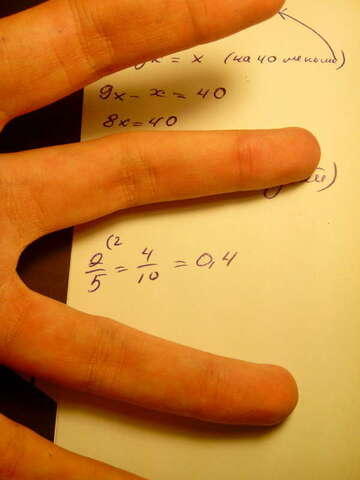 x = x (на 40 меньше)
9x - x = 40
8x = 40
2/5 (2 = 4/10 = 0,4